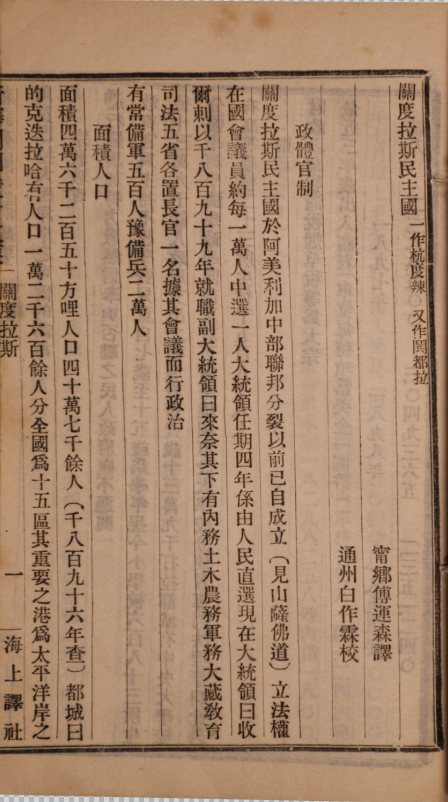 閧度拉斯民主國 一作杭度辣 又作閧都拉
甯鄉傅運森譯
通州白作霖校
政體官制
閧度拉斯民主國於阿美利加中部聯邦分裂以前已自成立（見山薩佛道）立法權
在國會議員約每一萬人中選一人大統領任期四年係由人民直選現在大統領曰收
爾刺以千八百九十九年就職副大統領曰來奈其下有內務土木農務軍務大藏教育
司法五省各置長官一名據其會議而行政治
有常備軍五百人豫備兵二萬人
面積人口
面積四萬六千二百五十方哩人口四十萬七千餘人（千八百九十六年查）都城曰
的克迭拉哈有人口一萬二千六百餘人分全國爲十五區其重要之港爲太平洋岸之
閧度拉斯 一 海上譯社